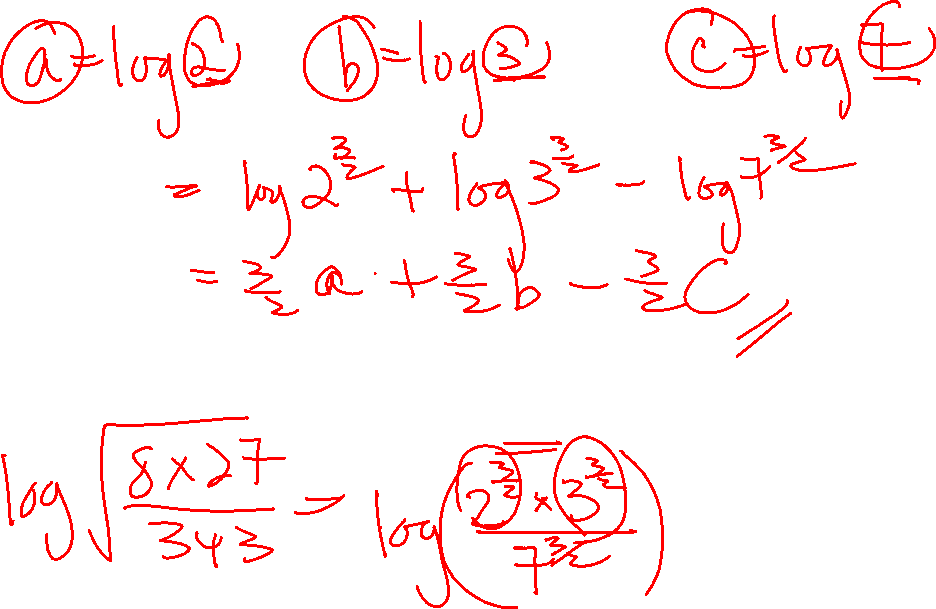 a = log 2 b = log 3 c = log 7
= log 2^{3/2} + log 3^{3/2} - log 7^{3/2}
= 3/2 a + 3/2 b - 3/2 C
log √(8×27/343) = log (2^{3/2} × 3^{3/2} / 7^{3/2})